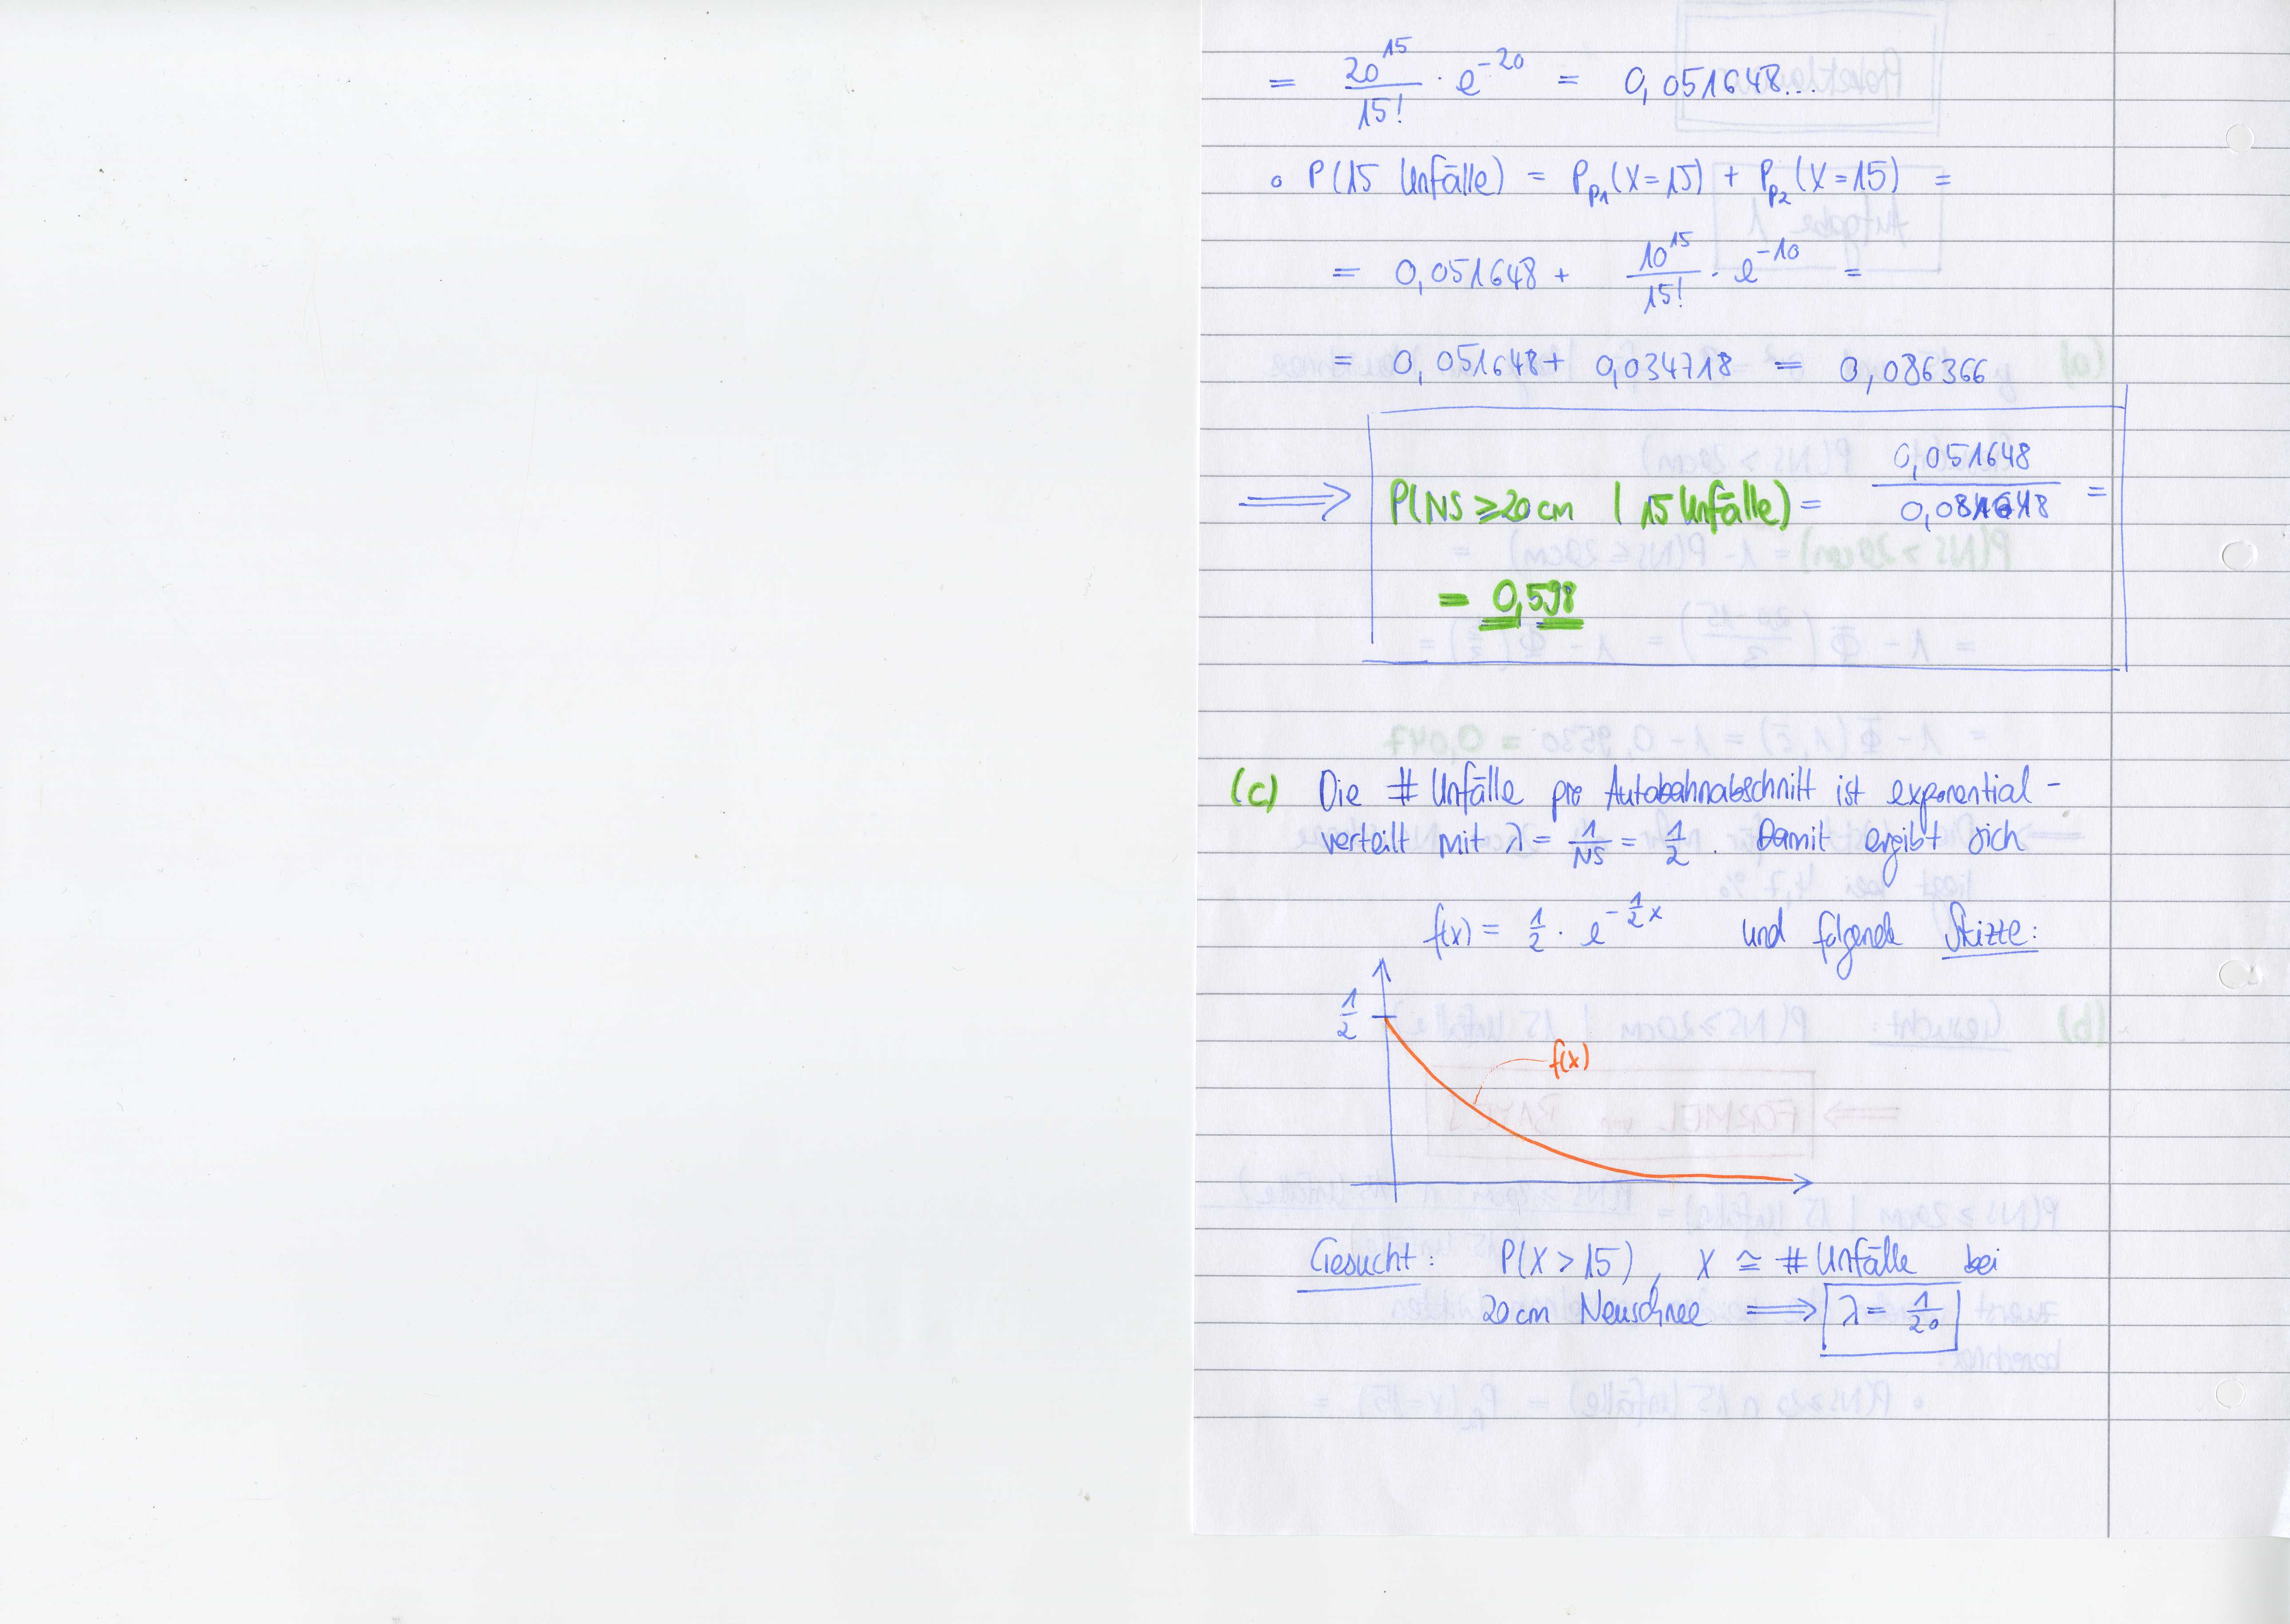 = 20^15 / 15! · e^-20 = 0,051648...
∘ P(15 Unfälle) = P_p1 (X=15) + P_p2 (X=15) =
= 0,051648 + 10^15 / 15! · e^-10 =
= 0,051648 + 0,034718 = 0,086366
⟹ P(NS ≥ 20 cm | 15 Unfälle) = 0,051648 /
=
= 0,598
(c) Die # Unfälle pro Autobahnabschnitt ist exponential-
verteilt mit λ = 1/NS = 1/2 . Damit ergibt sich
f(x) = 1/2 · e^-1/2 x und folgende Skizze:
1/2
f(x)
Gesucht: P(X > 15), X ≃ # Unfälle bei
20 cm Neuschnee ⟹ λ = 1/20